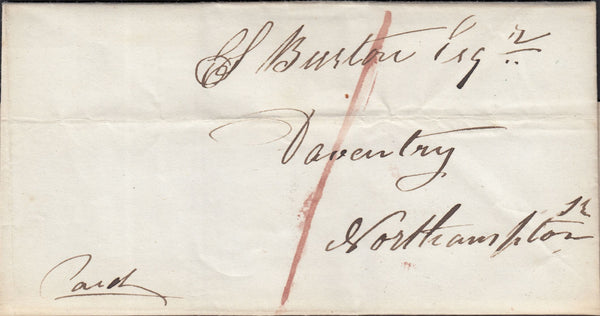 E S Burton Esqr
Daventry
Northamptonsr
Paid